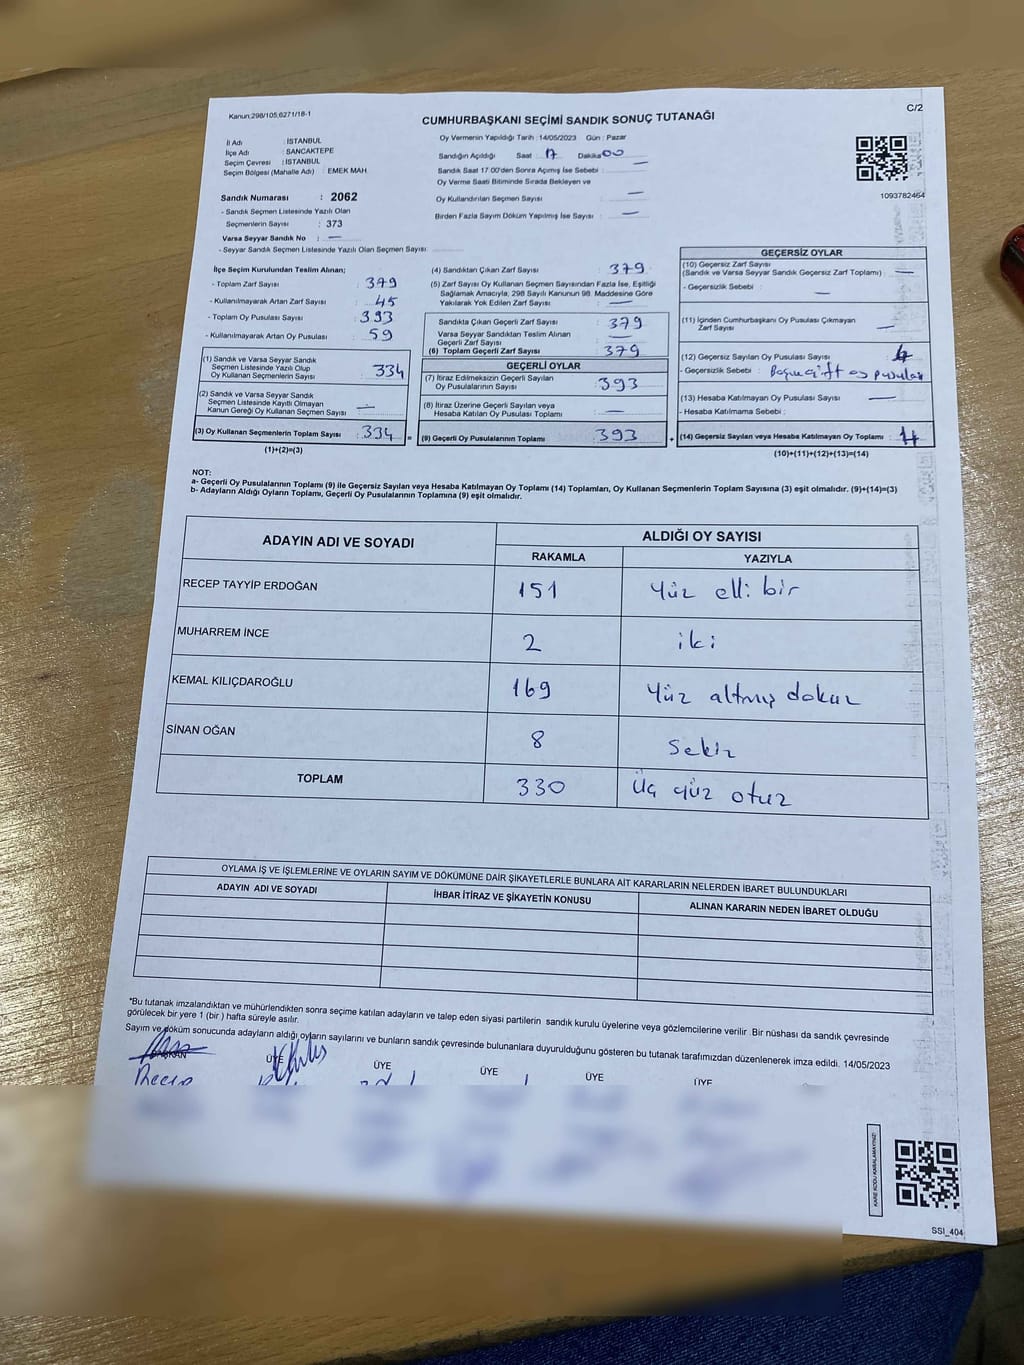 Kanun:298/105,6271/18-1
C/2
CUMHURBAŞKANI SEÇİMİ SANDIK SONUÇ TUTANAĞI
İl Adı : İSTANBUL
İlçe Adı : SANCAKTEPE
Seçim Çevresi : İSTANBUL
Seçim Bölgesi (Mahalle Adı) : EMEK MAH
Sandık Numarası : 2062
- Sandık Seçmen Listesinde Yazılı Olan
Seçmenlerin Sayısı : 373
Varsa Seyyar Sandık No : —
- Seyyar Sandık Seçmen Listesinde Yazılı Olan Seçmen Sayısı:
Oy Vermenin Yapıldığı Tarih :14/05/2023 Gün : Pazar
Sandığın Açıldığı Saat 17 Dakika 00
Sandık Saat 17.00'den Sonra Açılmış İse Sebebi : —
Oy Verme Saati Bitiminde Sırada Bekleyen ve
Oy Kullandırılan Seçmen Sayısı —
Birden Fazla Sayım Döküm Yapılmış İse Sayısı : —
1093782464
İlçe Seçim Kurulundan Teslim Alınan;
- Toplam Zarf Sayısı : 379
- Kullanılmayarak Artan Zarf Sayısı : 45
- Toplam Oy Pusulası Sayısı : 393
- Kullanılmayarak Artan Oy Pusulası : 59
(1) Sandık ve Varsa Seyyar Sandık
Seçmen Listesinde Yazılı Olup
Oy Kullanan Seçmenlerin Sayısı : 334
(2) Sandık ve Varsa Seyyar Sandık
Seçmen Listesinde Kayıtlı Olmayan
Kanun Gereği Oy Kullanan Seçmen Sayısı : —
(3) Oy Kullanan Seçmenlerin Toplam Sayısı : 334
(1)+(2)=(3)
(4) Sandıktan Çıkan Zarf Sayısı : 379
(5) Zarf Sayısı Oy Kullanan Seçmen Sayısından Fazla İse, Eşitliği
Sağlamak Amacıyla, 298 Sayılı Kanunun 98. Maddesine Göre
Yakılarak Yok Edilen Zarf Sayısı : —
Sandıkta Çıkan Geçerli Zarf Sayısı : 379
Varsa Seyyar Sandıktan Teslim Alınan
Geçerli Zarf Sayısı : —
(6) Toplam Geçerli Zarf Sayısı : 379
GEÇERLİ OYLAR
(7) İtiraz Edilmeksizin Geçerli Sayılan
Oy Pusulalarının Sayısı : 393
(8) İtiraz Üzerine Geçerli Sayılan veya
Hesaba Katılan Oy Pusulası Toplamı : —
(9) Geçerli Oy Pusulalarının Toplamı : 393
=
+
GEÇERSİZ OYLAR
(10) Geçersiz Zarf Sayısı
(Sandık ve Varsa Seyyar Sandık Geçersiz Zarf Toplamı) : —
- Geçersizlik Sebebi : —
(11) İçinden Cumhurbaşkanı Oy Pusulası Çıkmayan
Zarf Sayısı : —
(12) Geçersiz Sayılan Oy Pusulası Sayısı : 4
- Geçersizlik Sebebi : çift oy pusulası
(13) Hesaba Katılmayan Oy Pusulası Sayısı : —
- Hesaba Katılmama Sebebi :
(14) Geçersiz Sayılan veya Hesaba Katılmayan Oy Toplamı : 4
(10)+(11)+(12)+(13)=(14)
NOT:
a- Geçerli Oy Pusulalarının Toplamı (9) ile Geçersiz Sayılan veya Hesaba Katılmayan Oy Toplamı (14) Toplamları, Oy Kullanan Seçmenlerin Toplam Sayısına (3) eşit olmalıdır. (9)+(14)=(3)
b- Adayların Aldığı Oyların Toplamı, Geçerli Oy Pusulalarının Toplamına (9) eşit olmalıdır.
ADAYIN ADI VE SOYADI
ALDIĞI OY SAYISI
RAKAMLA YAZIYLA
RECEP TAYYİP ERDOĞAN 151 Yüz elli bir
MUHARREM İNCE 2 iki
KEMAL KILIÇDAROĞLU 169 Yüz altmış dokuz
SİNAN OĞAN 8 Sekiz
TOPLAM 330 Üç yüz otuz
OYLAMA İŞ VE İŞLEMLERİNE VE OYLARIN SAYIM VE DÖKÜMÜNE DAİR ŞİKAYETLERLE BUNLARA AİT KARARLARIN NELERDEN İBARET BULUNDUKLARI
ADAYIN ADI VE SOYADI İHBAR İTİRAZ VE ŞİKAYETİN KONUSU ALINAN KARARIN NEDEN İBARET OLDUĞU
*Bu tutanak imzalandıktan ve mühürlendikten sonra seçime katılan adayların ve talep eden siyasi partilerin sandık kurulu üyelerine veya gözlemcilerine verilir. Bir nüshası da sandık çevresinde
görülecek bir yere 1 (bir ) hafta süreyle asılır.
Sayım ve döküm sonucunda adayların aldığı oyların sayılarını ve bunların sandık çevresinde bulunanlara duyurulduğunu gösteren bu tutanak tarafımızdan düzenlenerek imza edildi. 14/05/2023
BAŞKAN ÜYE ÜYE ÜYE ÜYE ÜYE
Recep
KARE KODU KARALAMAYINIZ!
SSI_404